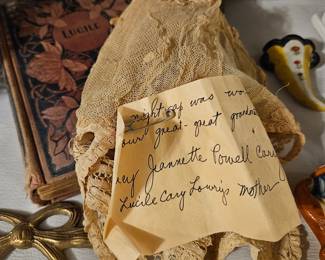 LUCILE
night cap was wo
our great-great grandmo
cy Jeannette Powell Cary
Lucile Cary Lowry's mother